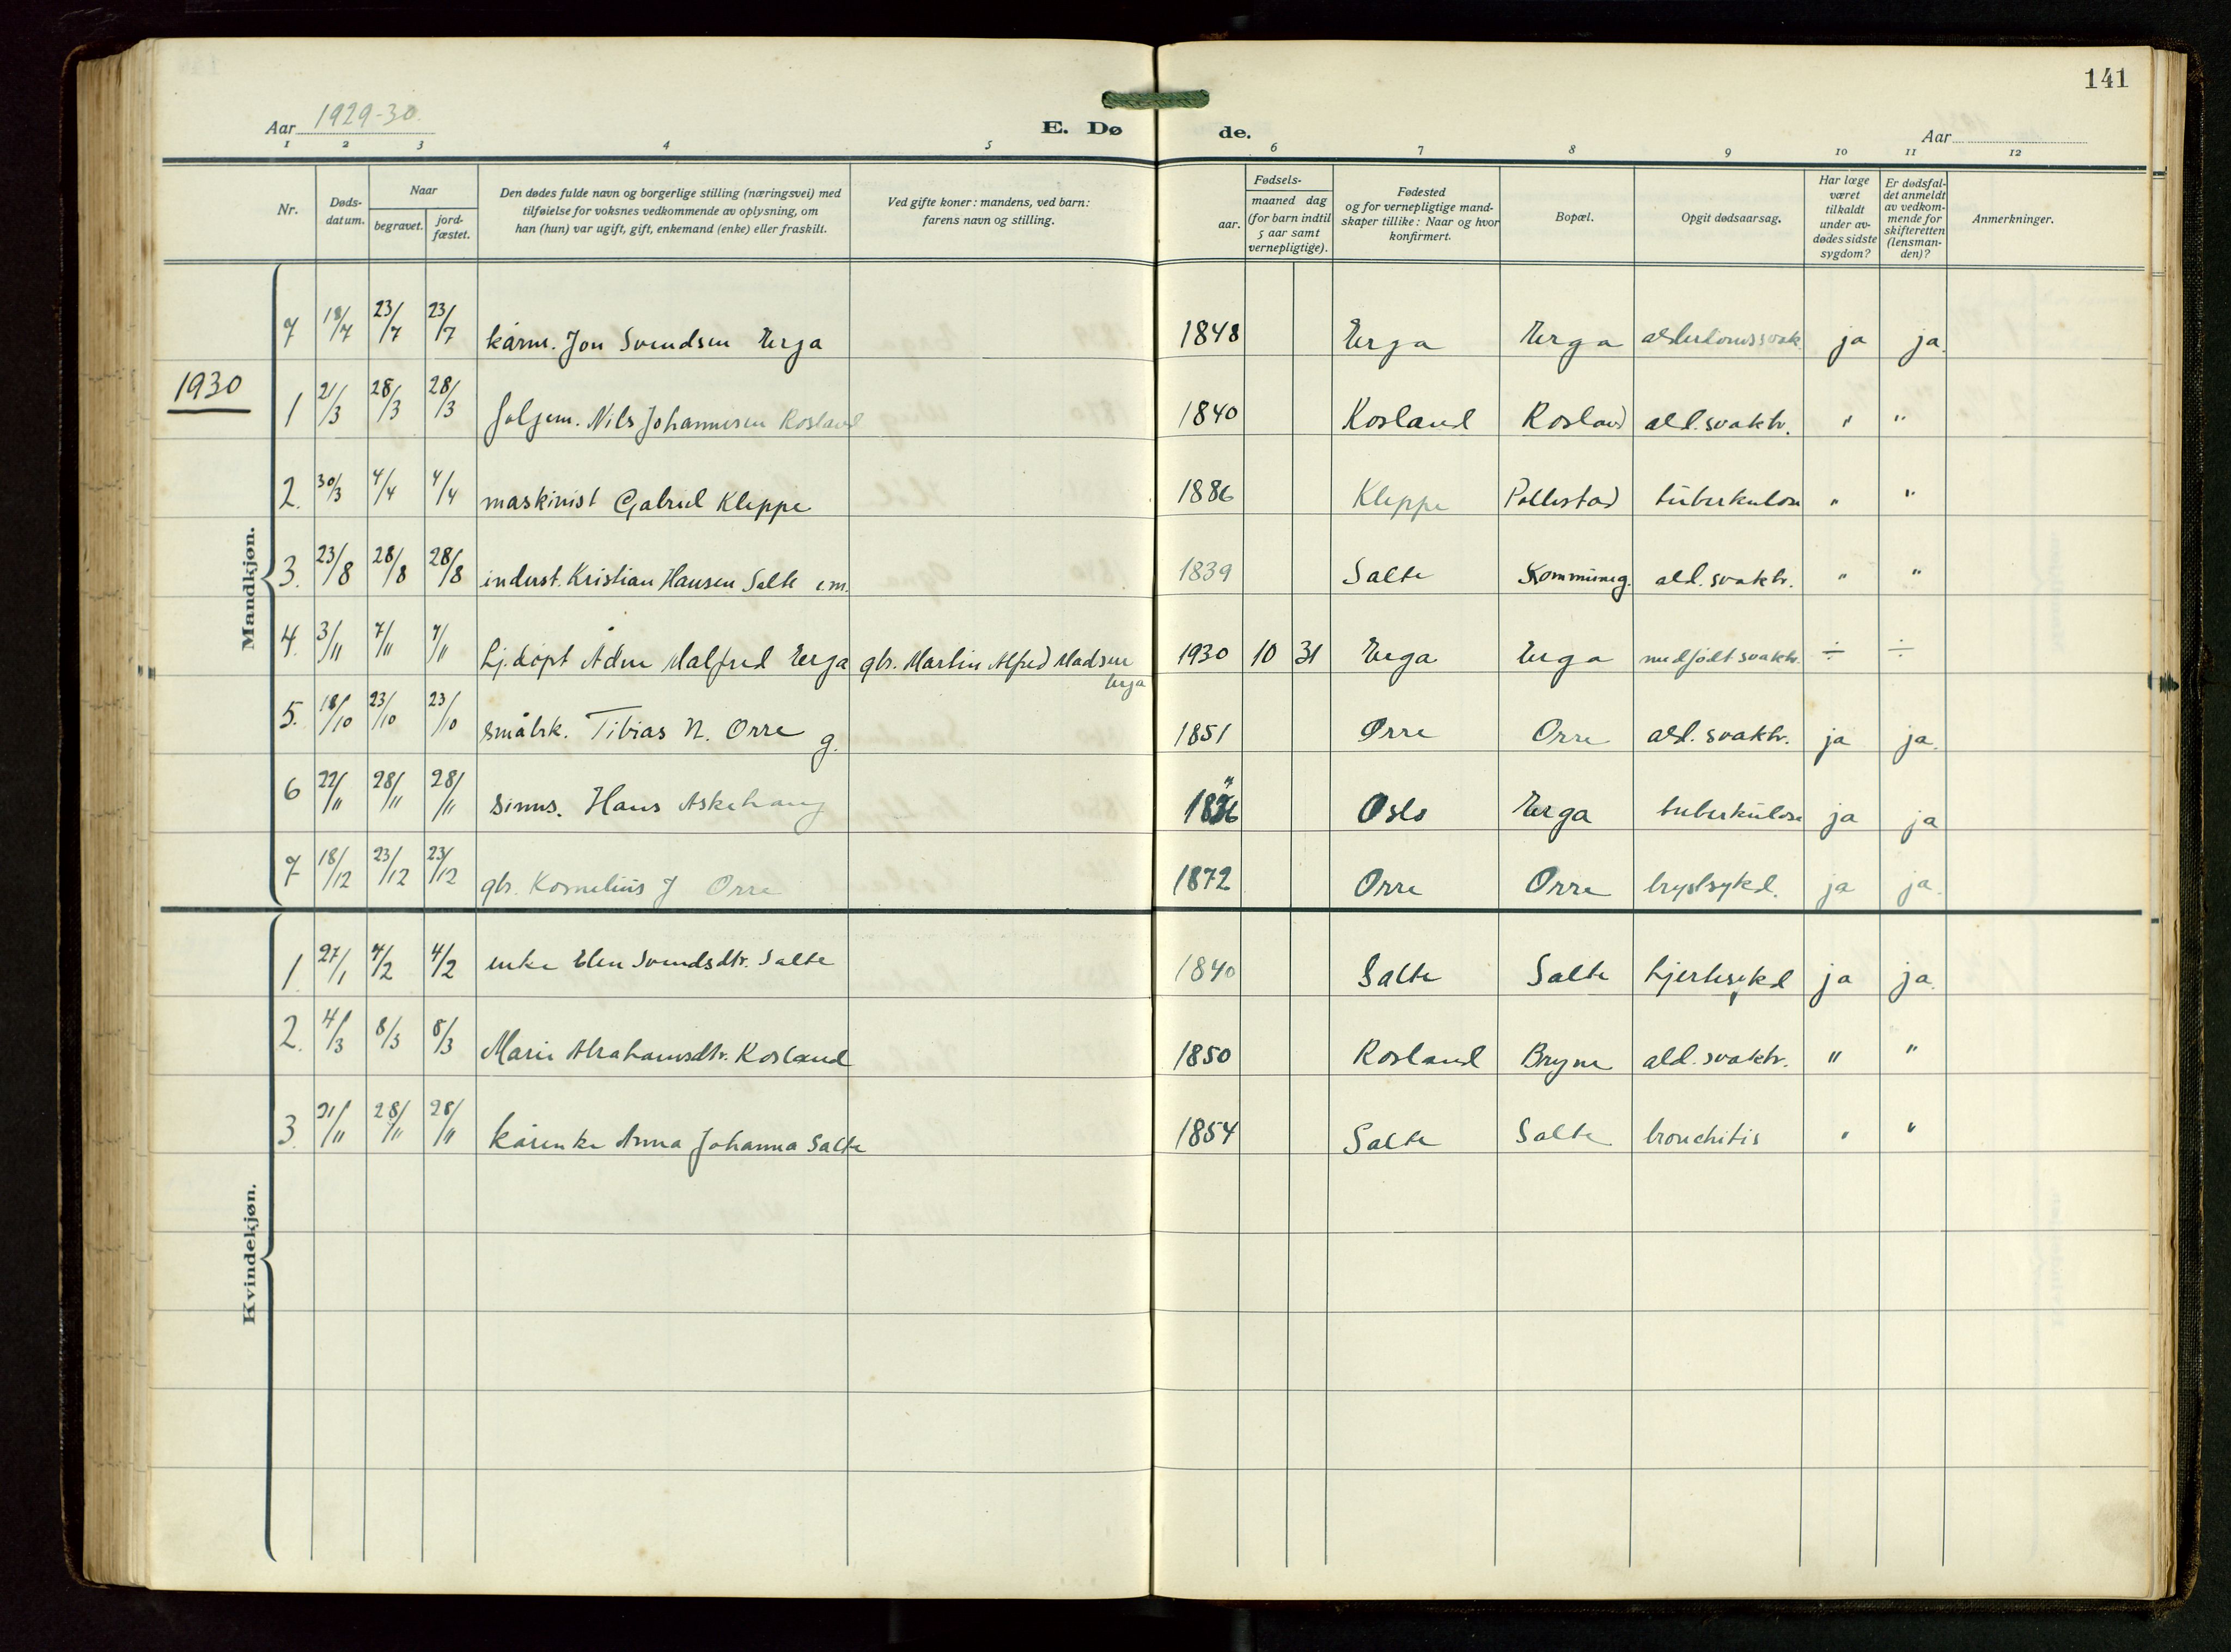 141
Aar 1929-30.
E. Dø de.
Aar
1 2 3 4 5 6 7 8 9 10 11 12
Nr.
Døds-datum.
Naar
begravet.
jord-fæstet.
Den dødes fulde navn og borgerlige stilling (næringsvei) med
tilføielse for voksnes vedkommende av oplysning, om
han (hun) var ugift, gift, enkemand (enke) eller fraskilt.
Ved gifte koner: mandens, ved barn:
farens navn og stilling.
Fødsels-
aar.
maaned dag
(for barn indtil
5 aar samt
vernepligtige).
Fødested
og for vernepligtige mand-
skaper tillike: Naar og hvor
konfirmert.
Bopæl.
Opgit dødsaarsag.
Har læge
været
tilkaldt
under av-
dødes sidste
sygdom?
Er dødsfal-
det anmeldt
av vedkom-
mende for
skifteretten
(lensman-
den)?
Anmerkninger.
Mandkjøn.
7 18/7 23/7 23/7 kårm. Jon Svendsen Erga 1848 Erga Erga alderdomssvak. ja ja.
1930
1 21/3 28/3 28/3 folgem. Nils Johannesen Rosland 1840 Rosland Rosland ald. svakh. " "
2. 30/3 4/4 4/4 maskinist Gabriel Kleppe 1886 Kleppe Pollestad tuberkulose " "
3. 23/8 28/8 28/8 inderst. Kristian Hansen Salte e.m. 1839 Salte Kommuneg. ald. svakh. " "
4. 3/11 7/11 7/11 hj.døpt Adne Malfred Erga gbr. Martin Alfred Madsen Erga 1930 10 31 Erga Erga medfødt svakh. ÷ ÷
5. 18/10 23/10 23/10 småbrk. Tobias N. Orre g. 1851 Orre Orre ald. svakh. ja ja.
6 22/11 28/11 28/11 sinns. Hans Askehaug Oslo Erga tuberkulose ja ja
7 18/12 23/12 23/12 gbr. Kornelius J Orre 1872 Orre Orre brystsykd. ja ja.
Kvindekjøn.
1. 27/1 4/2 4/2 enke Elen Svendsdtr. Salte 1840 Salte Salte hjertesykd ja ja.
2. 4/3 8/3 8/3 Marie Abrahamsdtr. Rosland 1850 Rosland Bryne ald. svakh. " "
3. 21/11 28/11 28/11 kårenke Anna Johanna Salte 1854 Salte Salte bronchitis " "